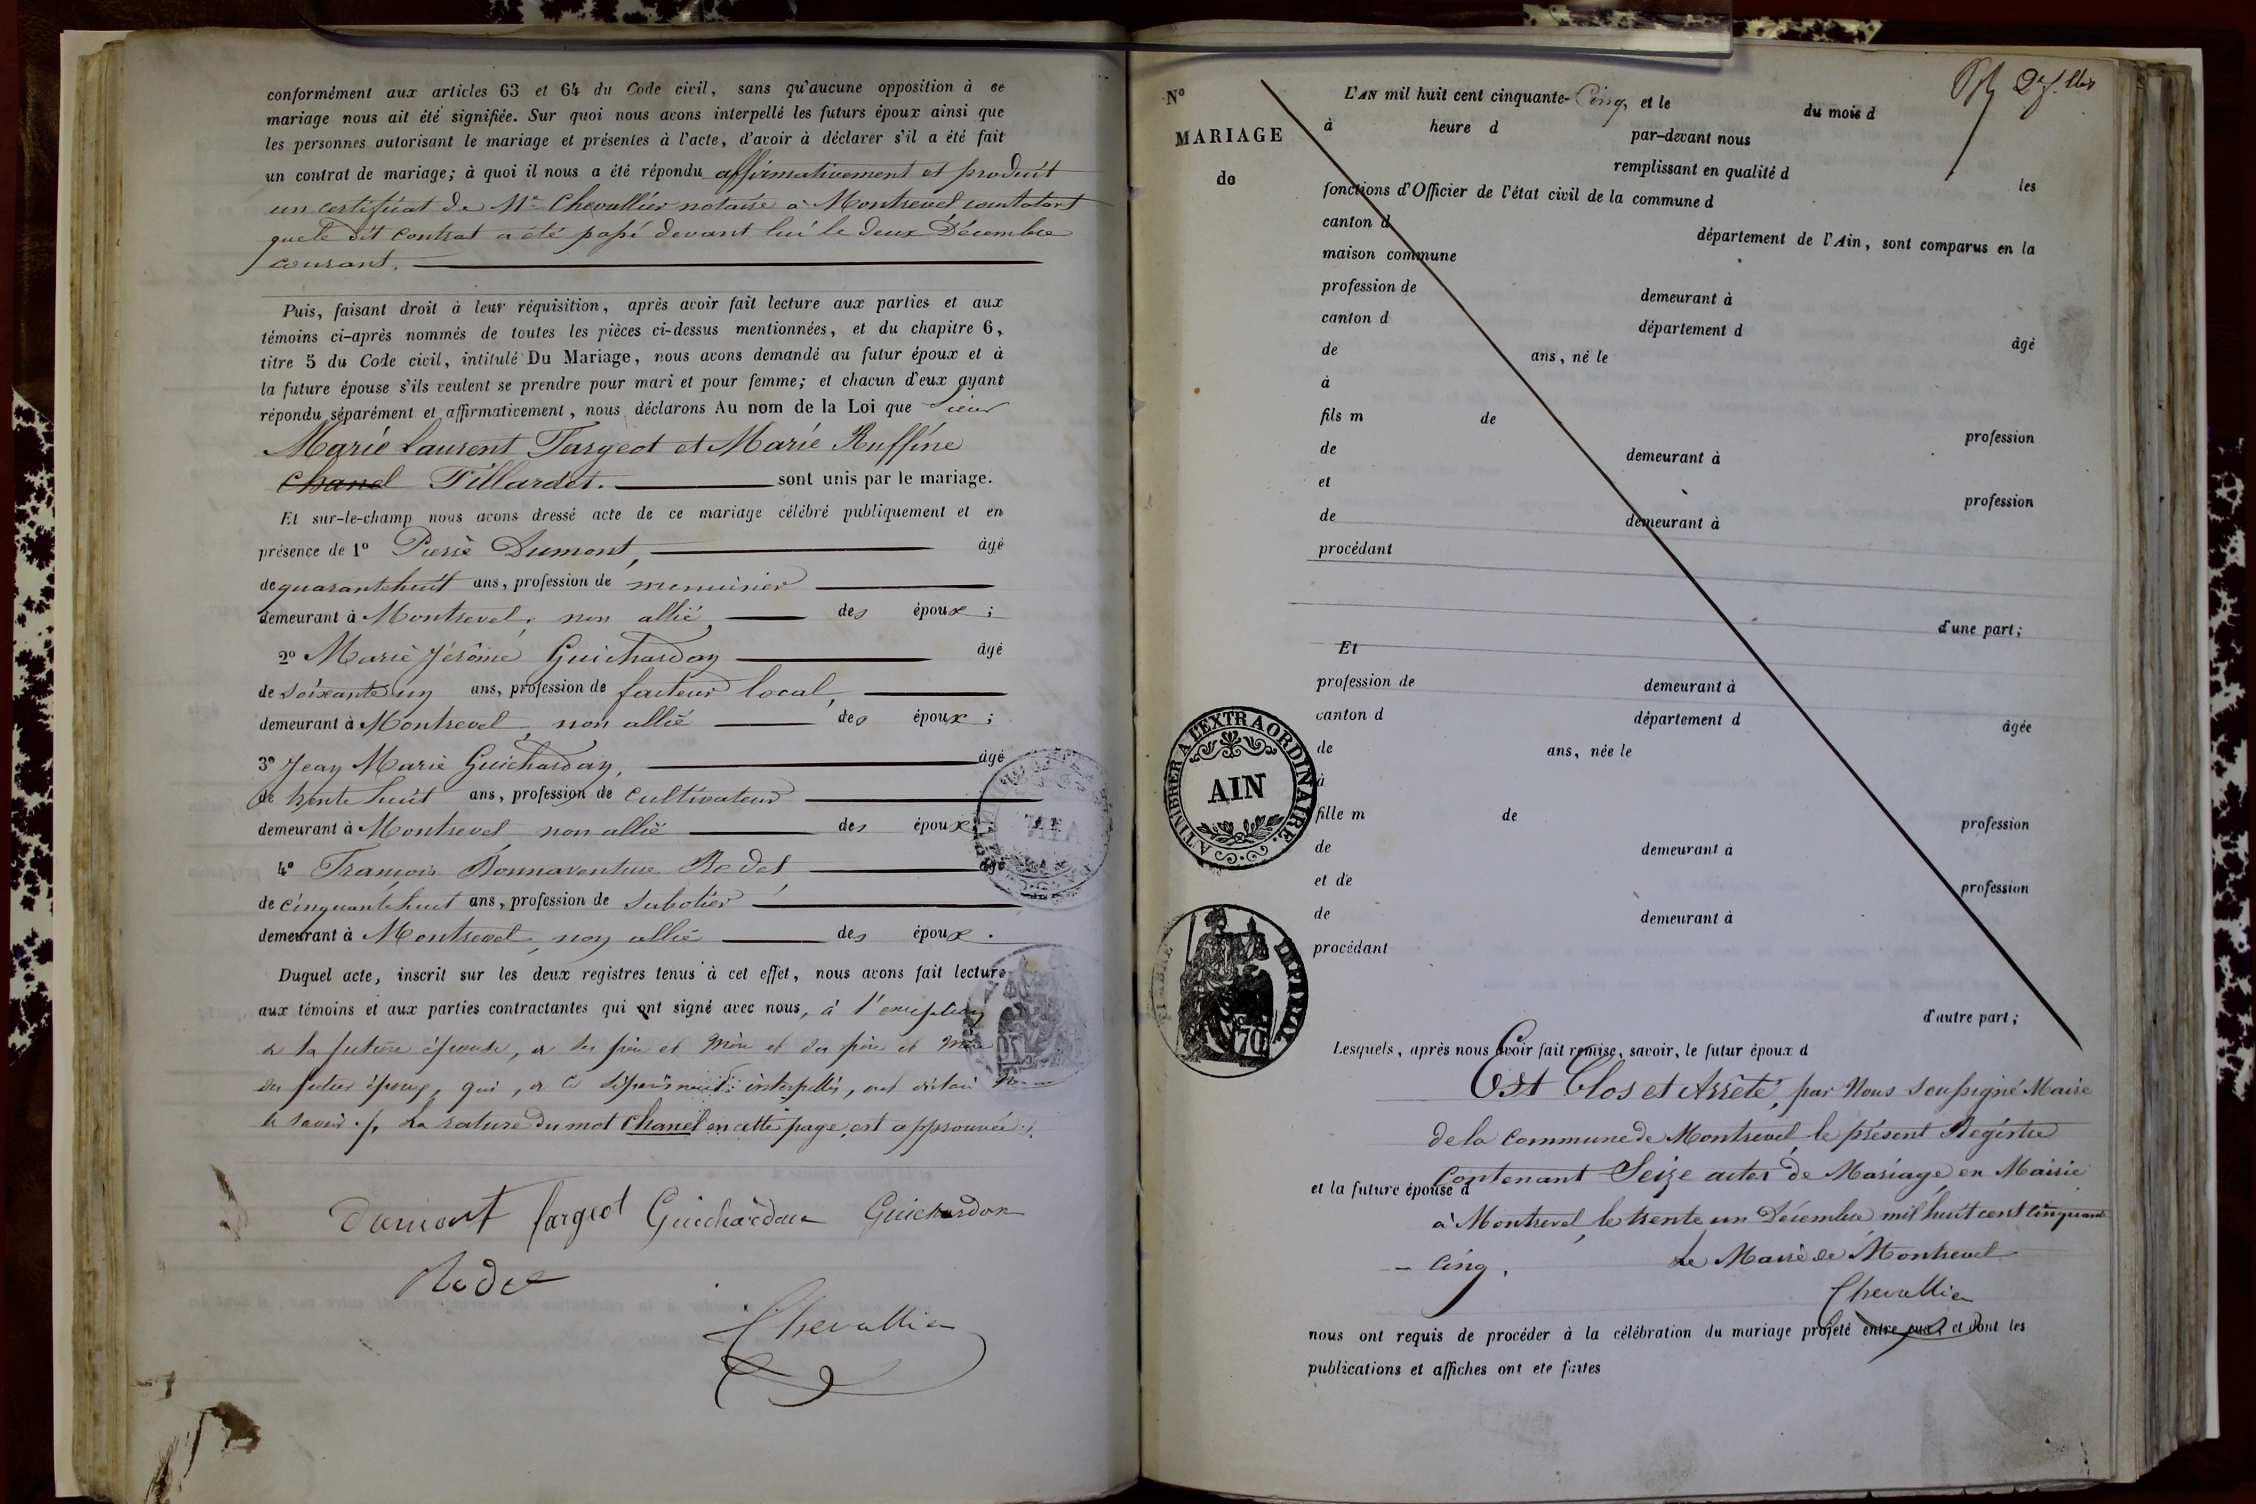 conformément aux articles 63 et 64 du Code civil, sans qu'aucune opposition à ce
mariage nous ait été signifiée. Sur quoi nous avons interpellé les futurs époux ainsi que
les personnes autorisant le mariage et présentes à l'acte, d'avoir à déclarer s'il a été fait
un contrat de mariage; à quoi il nous a été répondu affirmativement et produit
un certificat de Me Chevallier notaire à Montrevel constatant
que le dit contrat a été passé devant lui le deux Décembre
courant.
Puis, faisant droit à leur réquisition, après avoir fait lecture aux parties et aux
témoins ci-après nommés de toutes les pièces ci-dessus mentionnées, et du chapitre 6,
titre 5 du Code civil, intitulé Du Mariage, nous avons demandé au futur époux et à
la future épouse s'ils veulent se prendre pour mari et pour femme; et chacun d'eux ayant
répondu séparément et affirmativement, nous déclarons Au nom de la Loi que Sieur
Marie Laurent Fargeot et Marie Ruffine
Chanel Tillardet. sont unis par le mariage.
Et sur-le-champ nous avons dressé acte de ce mariage célébré publiquement et en
présence de 1º Pierre Dumont, âgé
de quarante huit ans, profession de menuisier
demeurant à Montrevel, non allié des époux;
2º Marie Jérôme Guichardon âgé
de soixante un ans, profession de facteur local,
demeurant à Montrevel, non allié des époux;
3º Jean Marie Guichardon, âgé
de trente huit ans, profession de cultivateur
demeurant à Montrevel, non allié des époux;
4º François Bonnaventure Rodet âgé
de cinquante huit ans, profession de sabotier,
demeurant à Montrevel, non allié des époux.
Duquel acte, inscrit sur les deux registres tenus à cet effet, nous avons fait lecture
aux témoins et aux parties contractantes qui ont signé avec nous, à l'exception
de la future épouse, de ses père et mère et des père et mère
du futur époux, qui, de ce interpellés, ont déclaré ne
le savoir ./. La rature du mot Chanel en cette page est approuvée ./.
Dumont fargeot Guichardon Guichardon
Rodet
Chevallier
Nº
MARIAGE
de
L'AN mil huit cent cinquante-Cinq, et le du mois d
à heure d par-devant nous
remplissant en qualité d les
fonctions d'Officier de l'état civil de la commune d
canton d département de l'Ain, sont comparus en la
maison commune
profession de demeurant à
canton d département d âgé
de ans, né le
à
fils m de profession
de demeurant à
et profession
de demeurant à
procédant
d'une part;
Et
profession de demeurant à
canton d département d âgée
de ans, née le
à
fille m de profession
de demeurant à
et de profession
de demeurant à
procédant
d'autre part;
A TIMBRER A L'EXTRAORDINAIRE.
AIN
70
Lesquels, après nous avoir fait remise, savoir, le futur époux d
Est Clos et Arrêté, par Nous soussigné Maire
de la commune de Montrevel, le présent Registre
Contenant Seize actes de Mariage, en Mairie
et la future épouse d
à Montrevel, le trente un Décembre mil huit cent cinquante
- Cinq. Le Maire de Montrevel
Chevallier
nous ont requis de procéder à la célébration du mariage projeté entre eux, et dont les
publications et affiches ont été faites